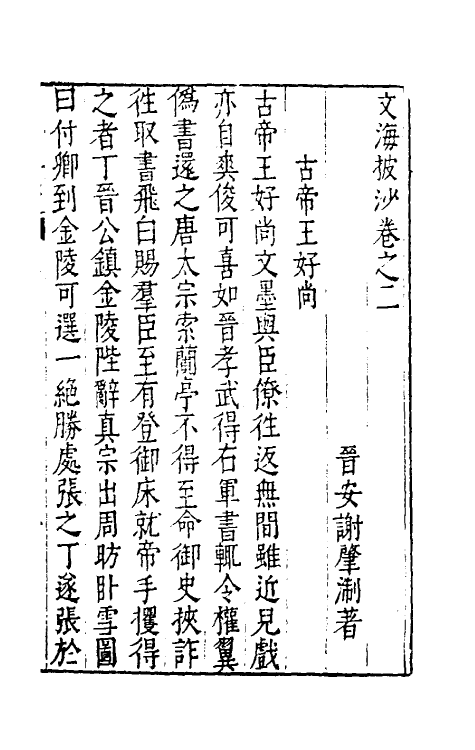 文海披沙卷之二
晉安謝肇淛著
古帝王好尚
古帝王好尚文墨與臣僚徃返無間雖近兒戲
亦自爽俊可喜如晉孝武得右軍書輒令權翼
偽書還之唐太宗索蘭亭不得至命御史挾詐
徃取書飛白賜羣臣至有登御床就帝手攫得
之者丁晉公鎮金陵陛辭真宗出周昉臥雪圖
曰付卿到金陵可選一絕勝處張之丁遂張於